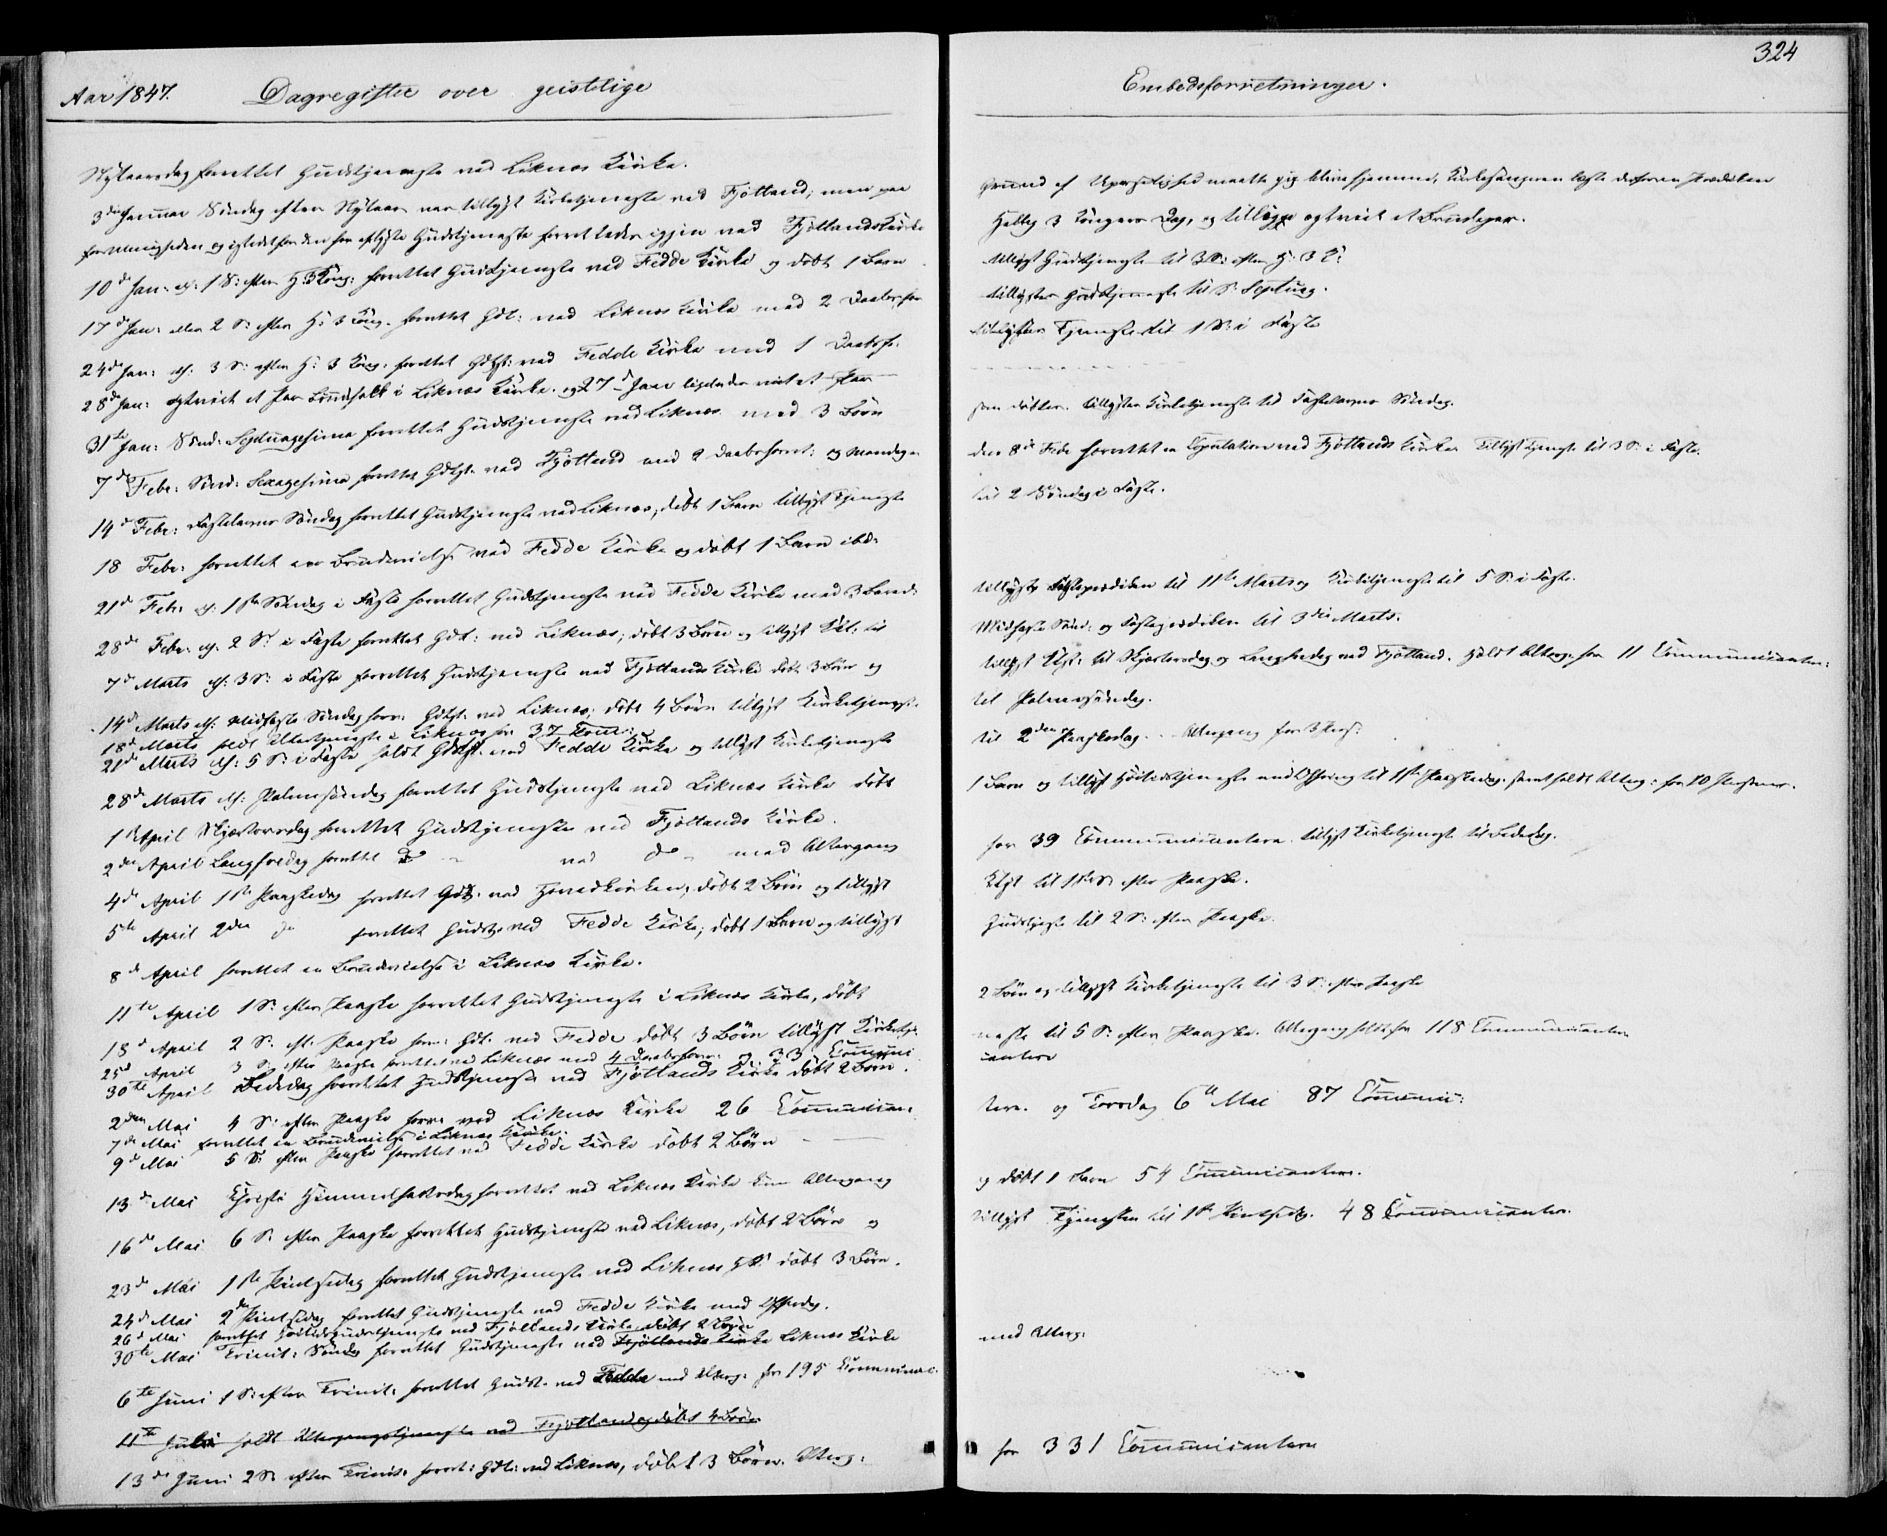 324
Aar 1847. Dagregister over geistlige Embedsforretninger.
Nytaarsdag forrettet Gudstjeneste ved Liknes Kirke.
3die Januar Søndag efter Nytaar var tillyst Kirketjeneste ved Fjotland; men paa
Grund af Upasselighed maatte jeg blive hjemme, Kirkesangeren læste derfor en Prædiken
for Menigheden og istedetfor den saa aflyste Gudstjeneste forrettedes igjen ved Fjotlands Kirke
Hellig 3 Kongers Dag, og tillige egtviet et Brudepar.
10de Jan: ɔ: 1 S: efter H. 3 Kong: forrettet Gudstjeneste ved Fedde Kirke og døbt 1 Barn
tillyst Gudstjeneste til 3 S: efter H: 3 K:
17de Jan: eller 2 S: efter H: 3 Kong. forrettet Gdt: ved Liknes Kirke med 2 Daabsfor
tillyster Gudstjeneste til S. Septuag.
24de Jan: ɔ: 3 S: efter H: 3 Kong. forrettet Gdtj: ved Fedde Kirke med 1 Daabsf.
tillyster Tjeneste til 1 S: i Faste
28de Jan: egtviet et Par Brudfolk i Liknes Kirke. og 27de Jan ligeledes viet et Par
31te Jan: Sønd: Septuagesima forrettet Gudstjeneste ved Liknes med 3 Børn
som døbtes. tillyster Kirketjeneste til Fastelavns Søndag.
7de Febr: Sønd: Sexagesima forrettet Gdtjst. ved Fjotland med 2 Daabsforret: og Mandagen
den 8de Febr forrettet en Copulation ved Fjotlands Kirke. Tillyst Tjeneste til 3 S. i Faste.
14de Febr: Fastelavns Søndag forrettet Gudstjeneste ved Liknes; døbt 1 Barn tillyst Tjeneste
til 2 Søndag i Faste.
18 Febr: forrettet en Brudevielse ved Fedde Kirke og døbt 1 Barn ibd.
21de Febr ɔ: 1ste Søndag i Faste forrettet Gudstjeneste ved Fedde Kirke med 3 Barnd.
tillyste Fasteprædiken til 11te Marts og Kirketjeneste til 5 S. i Faste.
28de Febr. ɔ: 2 S. i Faste forrettet Gdt: ved Liknes; døbt 3 Børn og tillyst Kbt: til
Midfaste Sønd: og Fasteprædiken til 3die Marts.
7de Marts ɔ: 3 S: i Faste forrettet Gudstjeneste ved Fjotlands Kirke døbt 3 Børn og
tillyst Gtjt: til Skjærtorsdag og Langfredag ved Fjotland. Holdt Alterg. for 11 Communicanter.
14de Marts ɔ: Midfaste Søndag forr: Gdtjt: ved Liknes; døbt 4 Børn tillyst Kirketjeneste
til Palmesøndag.
18de Marts holdt Altertjeneste i Liknes for 37 Com:
21de Marts ɔ: 5 S: i Faste holdt Gdtjt. ved Fedde Kirke og tillyst Kirketjeneste
til 2den Paaskedag. Altergang for 3 Pers:
28de Marts ɔ: Palmesøndag forrettet Gudstjeneste ved Liknes Kirke døbt
1 Barn og tillyst Høitidstjeneste med Offring til 1ste Paaskedag. samt holdt Alterg: for 10 Personer.
1ste April Skjærtorsdag forrettet Gudstjeneste ved Fjotlands Kirke.
2den April Langfredag forrettet do ved do med Altergang
for 39 Communicantere. tillyst Kirketjeneste til Bededag.
4de April 1ste Paaskedag forrettet Gdtj. ved Hovedkirken, døbt 2 Børn og tillyst
Ktjt til 1ste S. efter Paaske.
5te April 2den do forrettet Gudstj. ved Fedde Kirke; døbt 1 Barn og tillyst
Gudstjeste til 2 S. efter Paaske.
8de April forrettet en Brudevielse i Liknes Kirke.
11te April 1 S: efter Paaske forrettet Gudstjeneste i Liknes Kirke, døbt
2 Børn og tillyst Kirketjeneste til 3 S. efter Paaske
18de April 2 S. eft. Paaske forr: Gdt. ved Fedde døbt 3 Børn tillyst Kirketje-
neste til 5 S. efter Paaske. Altergang holdt for 118 Communicanter
25de April 3 S. efter Paaske forrettet ved Liknes med 4 Daabsforr: og 33 Communi
cantere
30te April Bededag forrettet Gudstjeneste ved Fjotlands Kirke døbt 2 Børn.
2den Mai 4 S: efter Paaske forr: ved Liknes Kirke 26 Communican:
tere. og Torsdag 6te Mai 87 Communi:
7de Mai forrettet en Brudevielse i Liknes Kirke.
9de Mai 5 S: efter Paaske forrettet ved Fedde Kirke døbt 2 Børn
13de Mai Christi Himmelfartsdag forrettet ved Liknes Kirke kun Altergang
og døbt 1 Barn 54 Communicantere.
16de Mai 6 S. efter Paaske forrettet Gudstjeneste ved Liknes, døbt 2 Børn og
tillyst Tjenesten til 1ste Pintsedag. 48 Communicanter.
23de Mai 1ste Pintsedag forrettet Gudstjeneste ved Liknes døbt 3 Børn.
24de Mai 2den Pintsedag forrettet Gudstjeneste ved Fedde Kirke med Offerdag.
26de Mai forrettet Høitidsgudstjeneste ved Fjotlands Kirke døbt 2 Børn
30te Mai Trinit: Søndag forrettet Gudstjeneste ved Fjotlands Kirke Liknes Kirke
med Alterg:
6te Juni 1 S: efter Trinit: forrettet Gudst. ved Fedde med Alterg: for 195 Communic:
11te Juli holdt Altergangstjeneste ved Fjotland og døbt 4 Børn
13de Juni 2 S. efter Trinit: forret: Gdt: ved Liknes, døbt 3 Børn. Alterg:
for 331 Communicantere